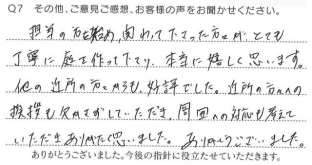 Q7 その他、ご意見ご感想、お客様の声をお聞かせください。
担当の方を始め、関わって下さった方々が、とても
丁寧に庭を作って下さり、本当に嬉しく思います。
他の近所の方々からも、好評でした。近所の方への
挨拶も欠かさずしていただき、周囲への対応も考えて
いただきありがたく思いました。ありがとうございました。
ありがとうございました。今後の指針に役立たせていただきます。